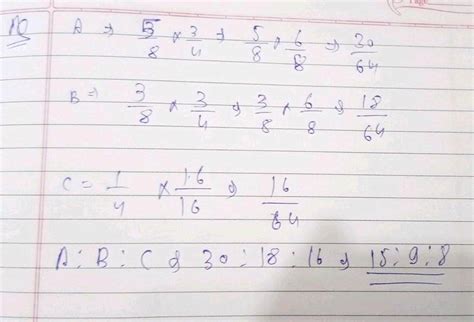 A ⇒ 5/8 × 3/4 ⇒ 5/8 × 6/8 ⇒ 30/64
B ⇒ 3/8 × 3/4 ⇒ 3/8 × 6/8 ⇒ 18/64
C = 1/4 × 16/16 ⇒ 16/64
A : B : C ⇒ 30 : 18 : 16 ⇒ 15 : 9 : 8